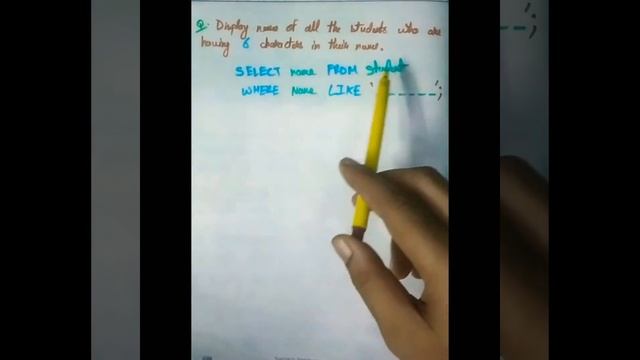 Q. Display name of all the students who are
having 6 characters in their name.
SELECT name FROM student
WHERE Name LIKE '______';